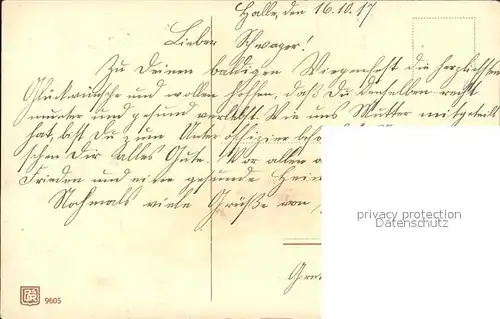 Halle, den 16.10.17.
Lieber Schwager!
Zu Deinem baldigen Wiegenfest die herzlichsten
Glückwünsche und wollen hoffen, daß Du denselben recht
munter und gesund verlebst. Wie uns Mutter mitgeteilt
hat, bist Du zum Unteroffizier
schen Dir Alles Gute. Vor allem
Frieden und eine gesunde
Nochmals viele Grüße von
privacy protection
Datenschutz
9605